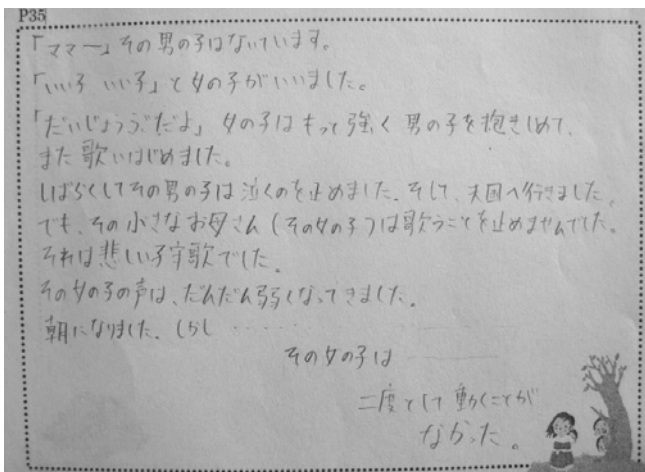 P35
「ママ〜」その男の子はないています。
「いい子 いい子」と女の子がいいました。
「だいじょうぶだよ」 女の子はもっと強く 男の子を抱きしめて、
また歌いはじめました。
しばらくしてその男の子は泣くのを止めました。そして、天国へ行きました。
でも、その小さなお母さん(その女の子)は歌うことを止めませんでした。
それは悲しい子守歌でした。
その女の子の声は、だんだん弱くなってきました。
朝になりました。しかし ・・・・・
その女の子は ―――
二度として動くことが
なかった。